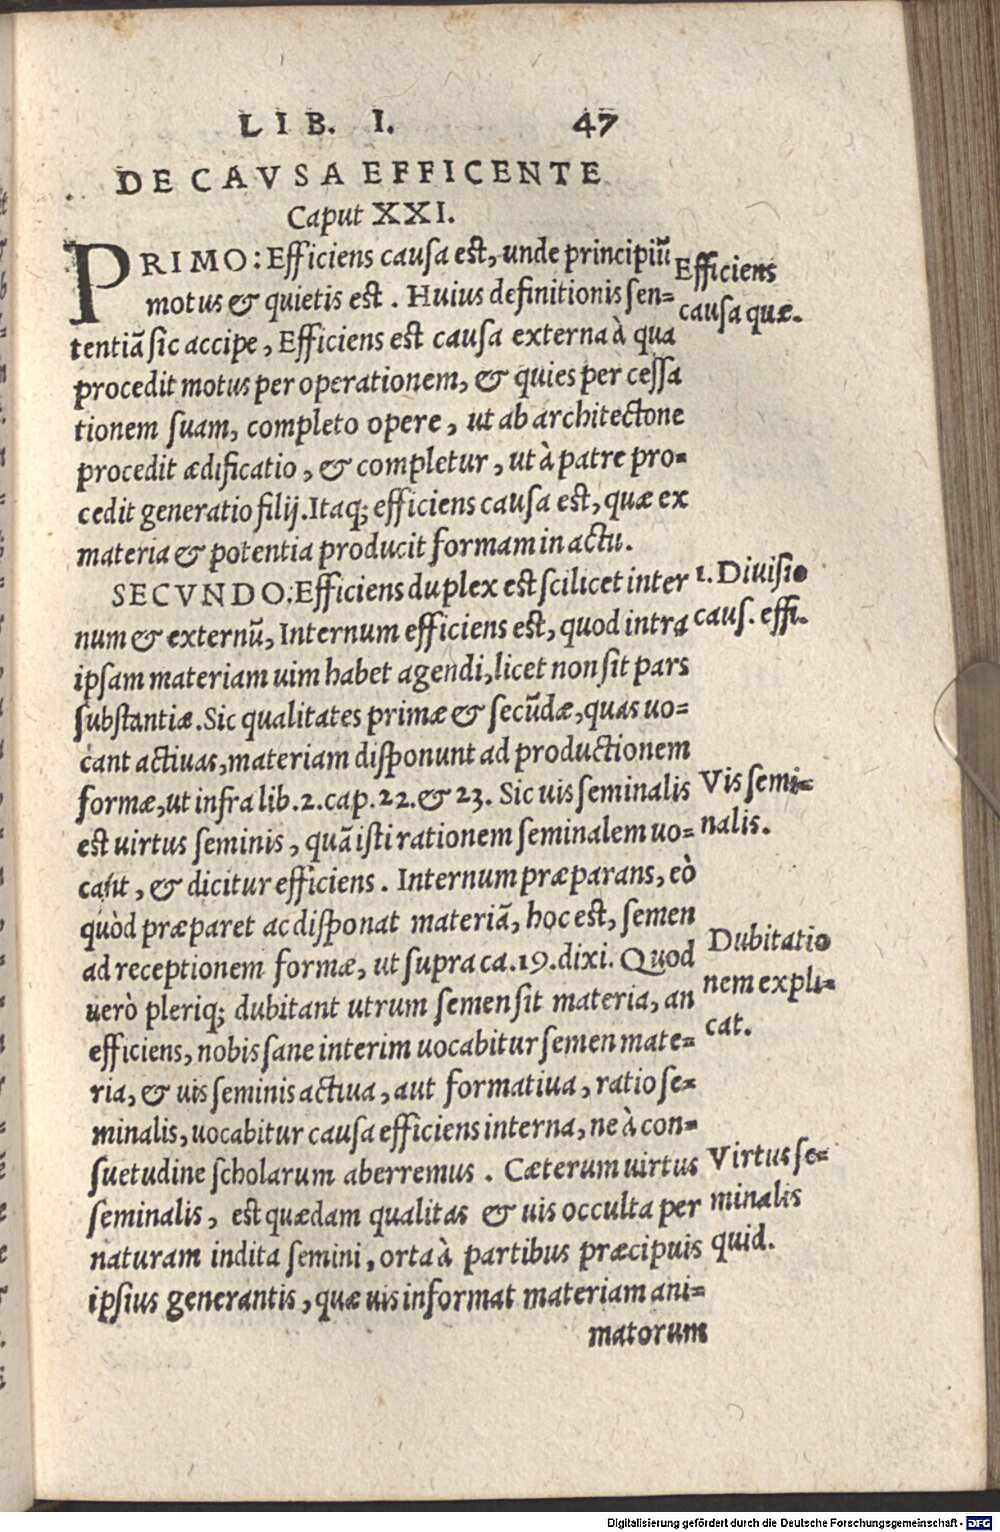 LIB. I. 47
DE CAVSA EFFICENTE
Caput XXI.
PRIMO: Efficiens causa est, unde principiũ
motus & quietis est. Huius definitionis sen-
tentiã sic accipe, Efficiens est causa externa à qua
procedit motus per operationem, & quies per cessa
tionem suam, completo opere, ut ab architectone
procedit ædificatio, & completur, ut à patre pro-
cedit generatio filij. Itaq; efficiens causa est, quæ ex
materia & potentia producit formam in actu.
Efficiens
causa quæ.
SECVNDO: Efficiens duplex est scilicet inter
num & externũ, Internum efficiens est, quod intra
ipsam materiam uim habet agendi, licet non sit pars
substantiæ. Sic qualitates primæ & secũdæ, quas uo-
cant actiuas, materiam disponunt ad productionem
formæ, ut infra lib. 2. cap. 22. & 23. Sic uis seminalis
est uirtus seminis, quã isti rationem seminalem uo-
cant, & dicitur efficiens. Internum præparans, eò
quòd præparet ac disponat materiã, hoc est, semen
ad receptionem formæ, ut supra ca. 19. dixi. Quod
uerò pleriq; dubitant utrum semen sit materia, an
efficiens, nobis sane interim uocabitur semen mate-
ria, & uis seminis actiua, aut formatiua, ratio se-
minalis, uocabitur causa efficiens interna, ne à con-
suetudine scholarum aberremus. Cæterum uirtus
seminalis, est quædam qualitas & uis occulta per
naturam indita semini, orta à partibus præcipuis
ipsius generantis, quæ uis informat materiam ani-
matorum
1. Diuisio
caus. effi.
Vis semi-
nalis.
Dubitatio
nem expli-
cat.
Virtus se-
minalis
quid.
Digitalisierung gefördert durch die Deutsche Forschungsgemeinschaft - DFG